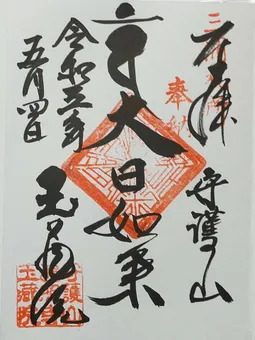 奉拝
守護山
大日如来
令和 年
五月四日
玉蔵院
守護山
玉蔵院